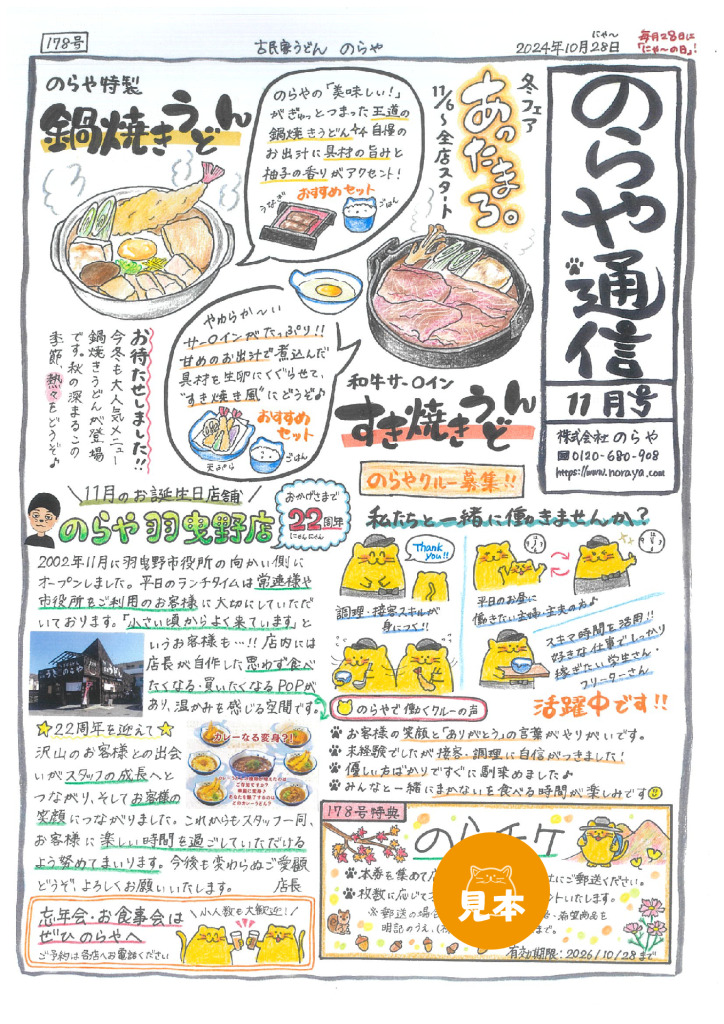 178号
古民家うどん のらや
にゃ〜
2024年10月28日
毎月28日に
「にゃ〜の日」!
のらや通信
11月号
株式会社 のらや
0120-680-908
https://www.noraya.com
冬フェア
あったまろ。
11/6〜全店スタート
のらや特製
鍋焼きうどん
のらやの「美味しい!」
がぎゅっとつまった王道の
鍋焼きうどん 自慢の
お出汁に具材の旨みと
柚子の香りがアクセント!
おすすめセット
うなぎ
ごはん
お待たせしました!!
今冬も大人気メニュー
鍋焼きうどんが登場
です。秋の深まるこの
季節、熱々をどうぞ♪
やわらか〜い
サーロインがたっぷり!!
甘めのお出汁で煮込んだ
具材を生卵にくぐらせて、
"すき焼き風"にどうぞ♪
おすすめ
セット
天ぷら
ごはん
和牛サーロイン
すき焼きうどん
11月のお誕生日店舗
のらや羽曳野店
おかげさまで
22周年
にゃんにゃん
2002年11月に羽曳野市役所の向かい側に
オープンしました。平日のランチタイムは常連様や
市役所をご利用のお客様に大切にしていただ
いております。「小さい頃からよく来ています」と
いうお客様も…!! 店内には
店長が自作した思わず食べ
たくなる・買いたくなるPOPが
あり、温かみを感じる空間です。
☆22周年を迎えて☆
沢山のお客様との出会
いがスタッフの成長へと
つながり、そしてお客様の
笑顔につながりました。これからもスタッフ一同、
お客様に楽しい時間を過ごしていただける
よう努めてまいります。今後も変わらぬご愛顧
どうぞ よろしくお願いいたします。 店長
カレーなる変身?!
忘年会・お食事会は
ぜひ のらやへ
ご予約は各店へお電話ください
小人数も大歓迎!
のらやクルー募集!!
私たちと一緒に働きませんか?
Thank you!!
調理・接客スキルが
身につく!!
平日のお昼に
働きたい主婦・主夫の方♪
スキマ時間を活用!!
好きな仕事でしっかり
稼ぎたい学生さん・
フリーターさん
活躍中です!!
のらやで働くクルーの声
お客様の笑顔と「ありがとう」の言葉がやりがいです。
未経験でしたが接客・調理に自信がつきました!
優しい方ばかりですぐに馴染めました♪
みんなと一緒にまかないを食べる時間が楽しみです
178号特典
のらチケ
本券を集めて
にご郵送ください。
枚数に応じて
ントいたします。
※郵送の場合
・希望商品を
明記のうえ、(株)
まで。
有効期限：2026/10/28まで
見本